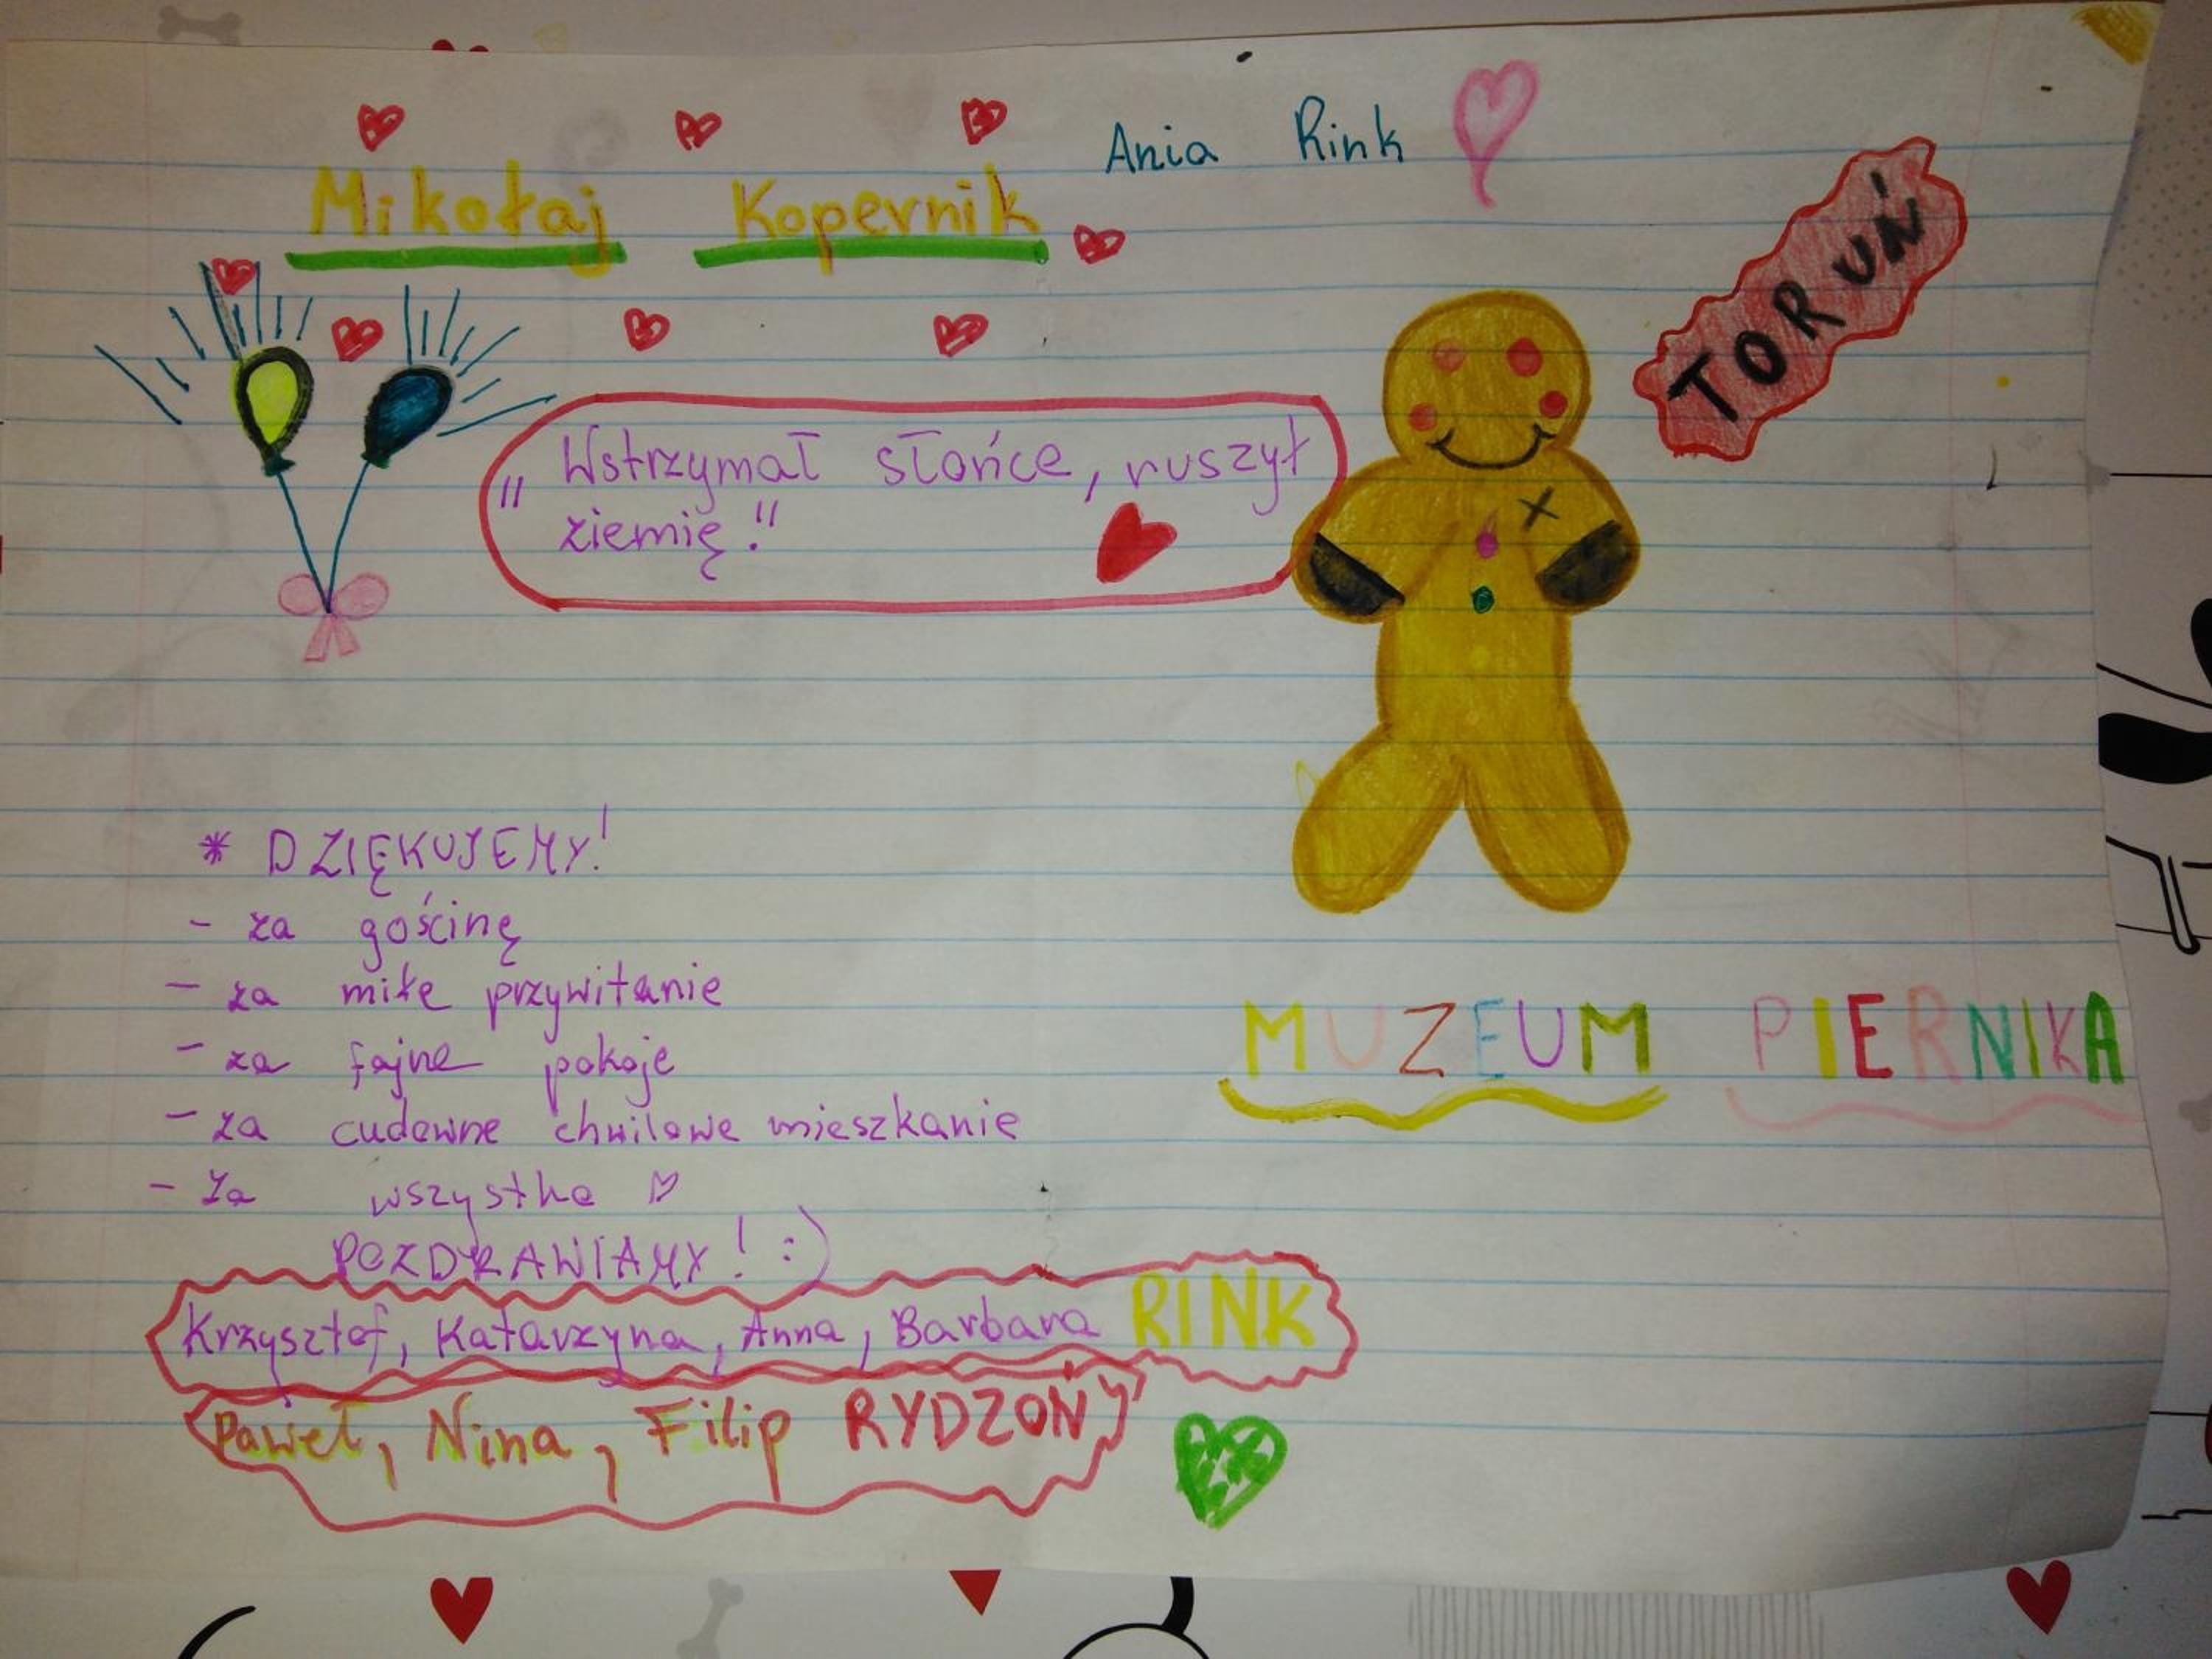 Ania Rink
Mikołaj Kopernik
TORUŃ
„Wstrzymał słońce, ruszył
ziemię!"
* DZIĘKUJEMY!
- za gościnę
- za miłe przywitanie
- za fajne pokoje
- za cudowne chwilowe mieszkanie
- za wszystko
POZDRAWIAMY! :)
MUZEUM PIERNIKA
Krzysztof, Katarzyna, Anna, Barbara RINK
Paweł, Nina, Filip RYDZOŃ